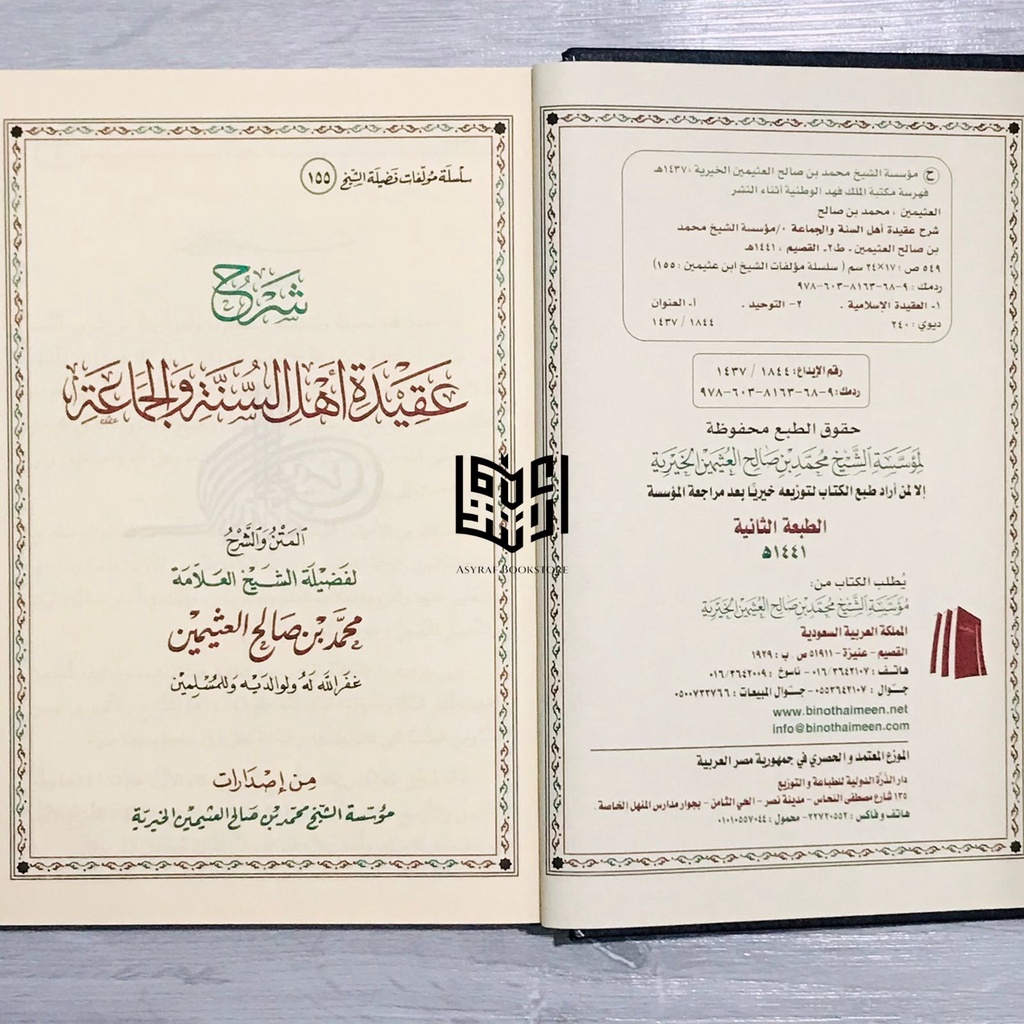 ح مؤسسة الشيخ محمد بن صالح العثيمين الخيرية، ١٤٣٧هـ
فهرسة مكتبة الملك فهد الوطنية أثناء النشر
العثيمين ، محمد بن صالح
شرح عقيدة أهل السنة والجماعة ./مؤسسة الشيخ محمد
بن صالح العثيمين .- ط٢.- القصيم ، ١٤٤١هـ
٥٤٩ ص ؛ ١٧×٢٤ سم ( سلسلة مؤلفات الشيخ ابن عثيمين ؛ ١٥٥)
ردمك : ٩-٦٨-٨١٦٣-٦٠٣-٩٧٨
١- العقيدة الإسلامية . ٢- التوحيد . أ- العنوان
ديوي : ٢٤٠ ١٨٤٤ / ١٤٣٧
رقم الإيداع: ١٨٤٤ / ١٤٣٧
ردمك: ٩-٦٨-٨١٦٣-٦٠٣-٩٧٨
حقوق الطبع محفوظة
لمؤسسة الشيخ محمد بن صالح العثيمين الخيرية
إلا لمن أراد طبع الكتاب لتوزيعه خيريًا بعد مراجعة المؤسسة
الطبعة الثانية
١٤٤١هـ
يُطلب الكتاب من:
مؤسسة الشيخ محمد بن صالح العثيمين الخيرية
المملكة العربية السعودية
القصيم - عنيزة - ٥١٩١١ ص . ب : ١٩٢٩
هاتف : ٠١٦/٣٦٤٢١٠٧ - ناسوخ : ٠١٦/٣٦٤٢٠٠٩
جوال : ٠٥٥٣٦٤٢١٠٧ - جوال المبيعات : ٠٥٠٠٧٣٣٧٦٦
www.binothaimeen.net
info@binothaimeen.com
الموزع المعتمد و الحصري في جمهورية مصر العربية
دار الدُّرَّة الدولية للطباعة و التوزيع
١٣٥ شارع مصطفى النحاس - مدينة نصر - الحي الثامن - بجوار مدارس المنهل الخاصة.
هاتف و فاكس : ٢٢٧٢٠٥٥٢ - محمول : ٠١٠١٠٥٥٧٠٤٤
سلسلة مؤلفات فضيلة الشيخ ١٥٥
شَرْحُ
عَقِيدَةِ أَهْلِ السُّنَّةِ وَالْجَمَاعَةِ
المَتْنُ وَالشَّرْحُ
لفَضِيلَة الشَّيْخ العَلَّامَة
محمَّد بْن صَالح العثيمين
غفَر الله لَهُ ولوالديْه وَللمُسْلِمين
مِن إِصْدَارات
مؤسّسة الشيخ محمّد بْن صَالح العثيمين الخيريّة
ASYRAF BOOKSTORE